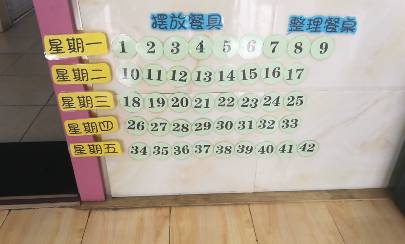 摆放餐具 整理餐桌
星期一 1 2 3 4 5 6 7 8 9
星期二 10 11 12 13 14 15 16 17
星期三 18 19 20 21 22 23 24 25
星期四 26 27 28 29 30 31 32 33
星期五 34 35 36 37 38 39 40 41 42